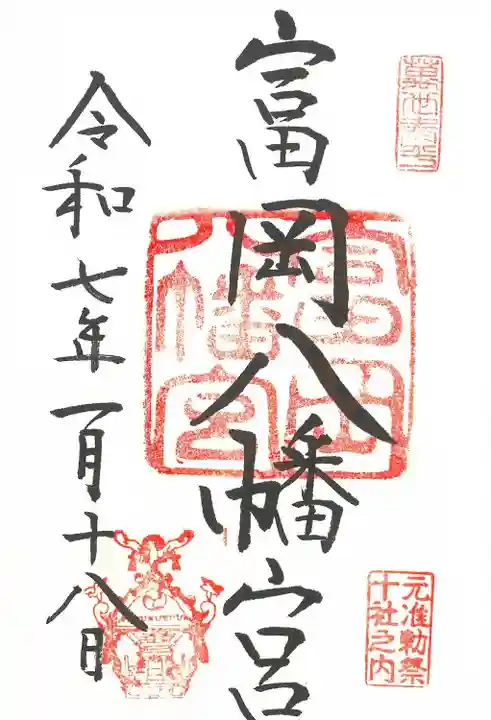 萬世泰平
富岡八幡宮
富岡八幡宮
元准勅祭
十社之内
令和七年一月十八日